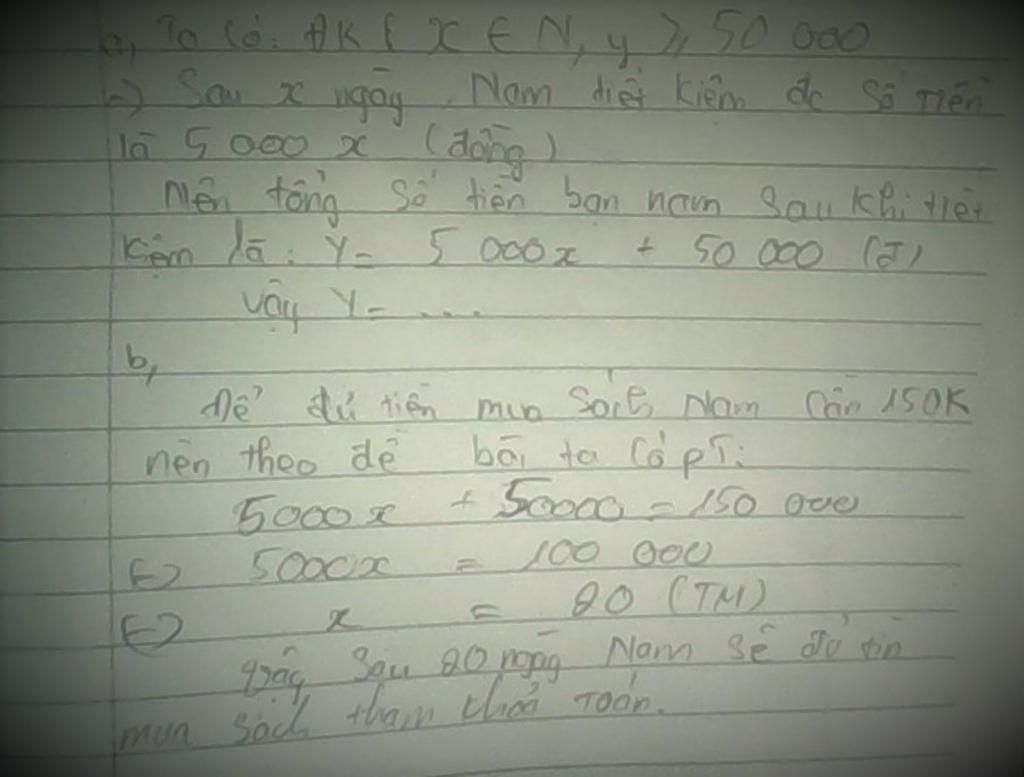 a, Ta có: ĐK { x ∈ N, y ≥ 50 000
=> Sau x ngày, Nam tiết kiệm đc số tiền
là 5 000 x (đồng)
Nên tổng số tiền bạn nam sau khi tiết
kiệm là: Y = 5 000x + 50 000 (đ)
Vậy Y = ...
b,
Để đủ tiền mua sách, Nam cần 150K
nên theo đề bài ta có pT:
5000x + 50000 = 150 000
<=> 5000x = 100 000
<=> x = 20 (TM)
Vậy sau 20 ngày Nam sẽ đủ tiền
mua sách tham khảo Toán.